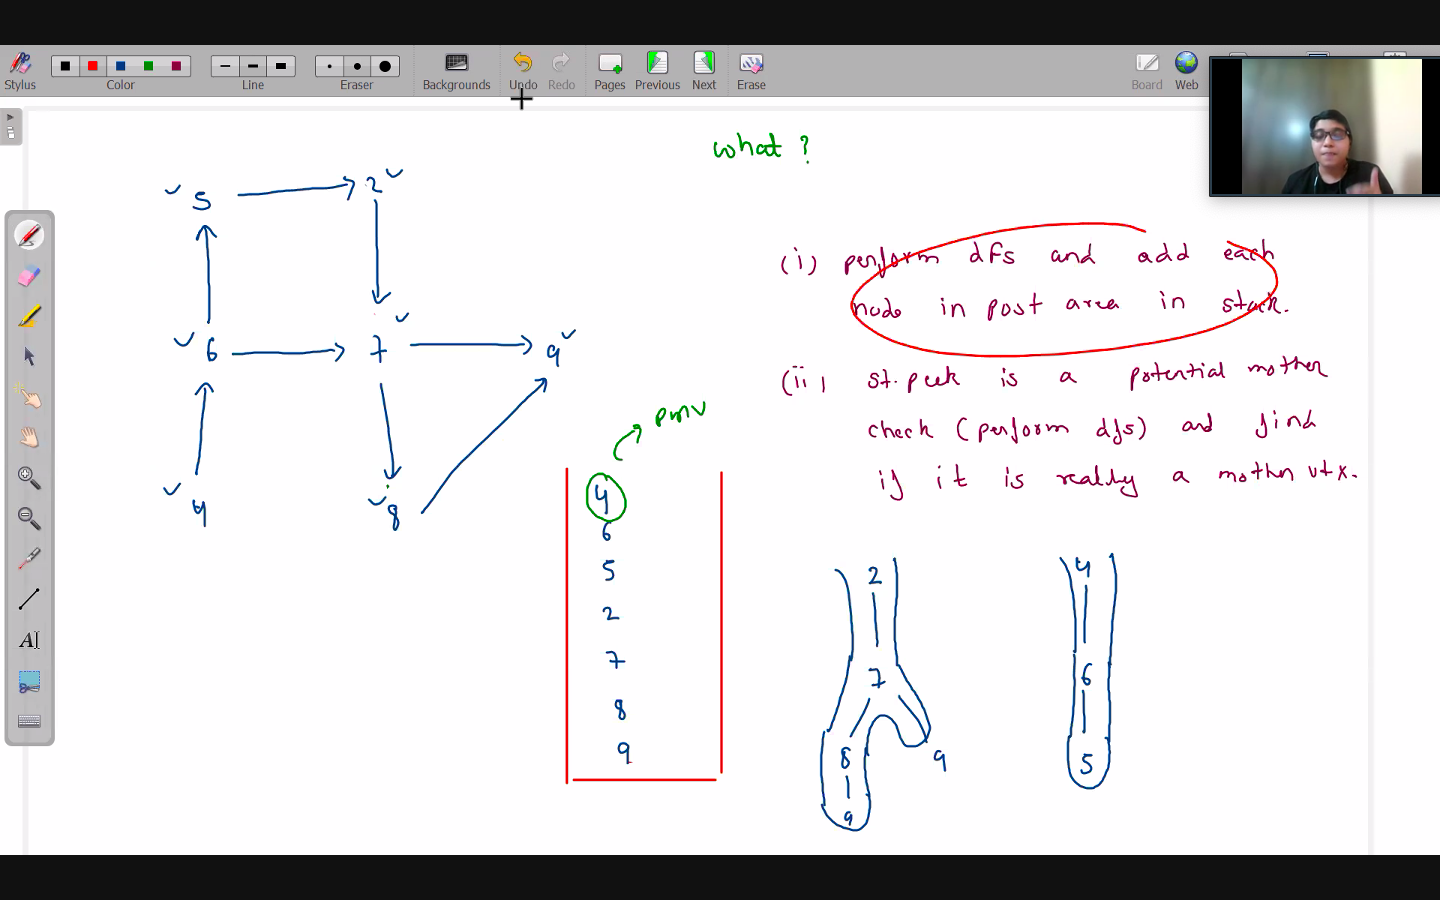 Stylus Color Line Eraser Backgrounds Undo Redo Pages Previous Next Erase Board Web
what ?
5 2
6 7 9
4 8
(i) perform dfs and add each
node in post area in stack.
(ii) st.peek is a potential mother
check (perform dfs) and find
if it is really a mother vtx.
pmv
4
6
5
2
7
8
9
2
7
8 9
9
4
6
5